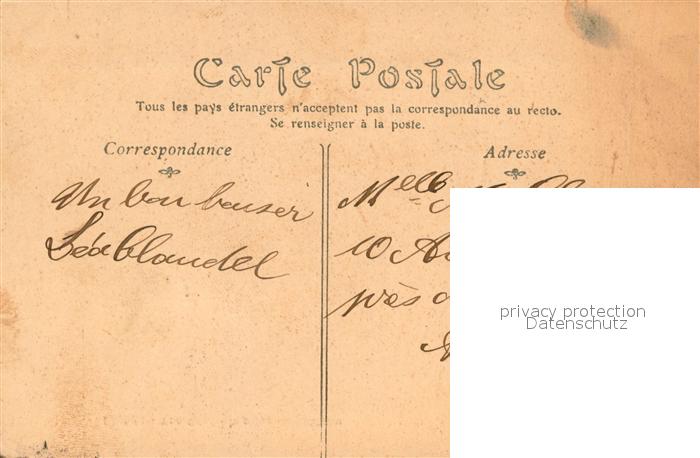 Carte Postale
Tous les pays étrangers n'acceptent pas la correspondance au recto.
Se renseigner à la poste.
Correspondance
Adresse
Un bon baiser
Léa Claudel
Melle
10
près
privacy protection
Datenschutz